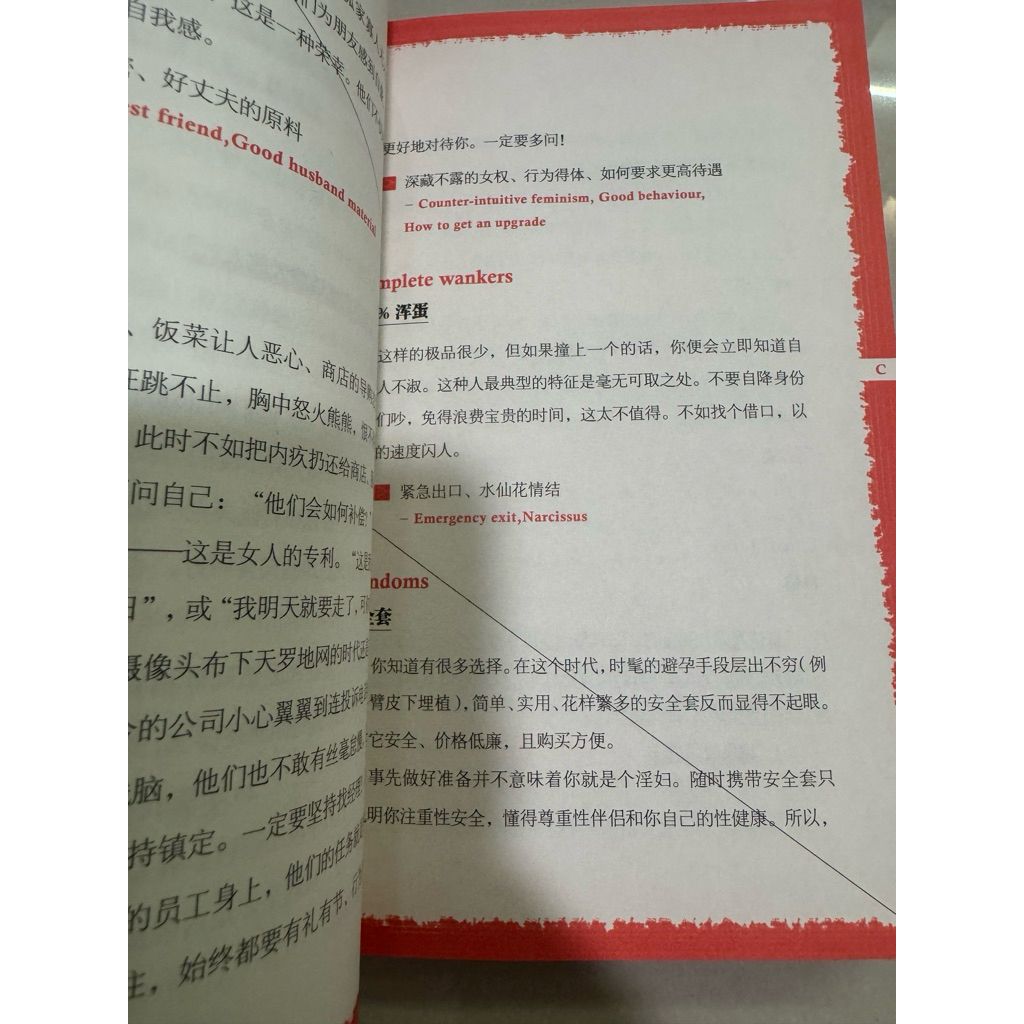 自我感。
这是一种荣幸。他们
们为朋友感到
、好丈夫的原料
est friend,Good husband material
、饭菜让人恶心、商店的导
狂跳不止，胸中怒火熊熊，恨不
此时不如把内疚扔还给商店、
问自己：“他们会如何补偿？”
——这是女人的专利。“这是
日”，或“我明天就要走了，可
摄像头布下天罗地网的时代还
的公司小心翼翼到连投诉电
脑，他们也不敢有丝毫怠慢
持镇定。一定要坚持找经理
的员工身上，他们的任务就
始终都要有礼有节、行
更好地对待你。一定要多问！
深藏不露的女权、行为得体、如何要求更高待遇
– Counter-intuitive feminism, Good behaviour,
How to get an upgrade
mplete wankers
% 浑蛋
这样的极品很少，但如果撞上一个的话，你便会立即知道自
人不淑。这种人最典型的特征是毫无可取之处。不要自降身份
们吵，免得浪费宝贵的时间，这太不值得。不如找个借口，以
的速度闪人。
紧急出口、水仙花情结
– Emergency exit,Narcissus
C
ndoms
全套
你知道有很多选择。在这个时代，时髦的避孕手段层出不穷（例
臂皮下埋植），简单、实用、花样繁多的安全套反而显得不起眼。
它安全、价格低廉，且购买方便。
事先做好准备并不意味着你就是个淫妇。随时携带安全套只
明你注重性安全，懂得尊重性伴侣和你自己的性健康。所以，